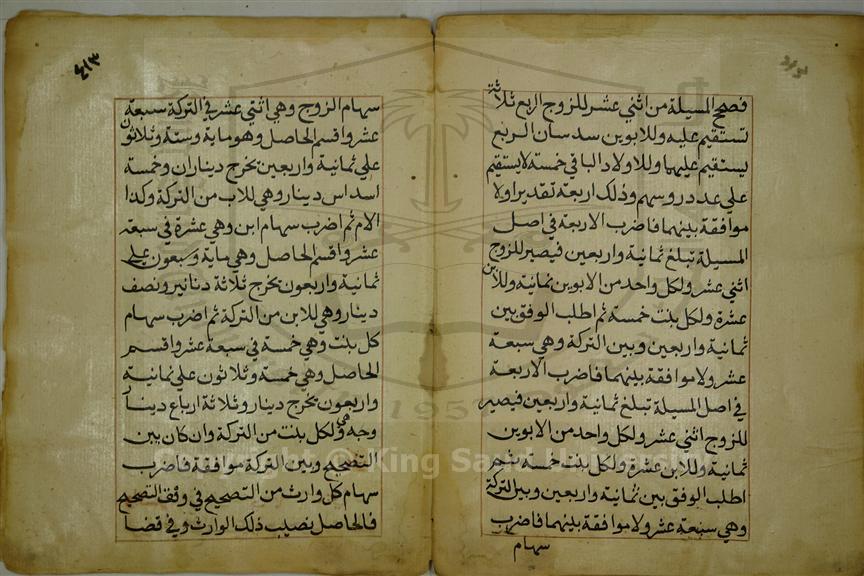 فصح المسيلة من اثني عشر للزوج الربع ثلاثة
تستقيم عليه وللابوين سدسان الربع
يستقيم عليهما وللاولاد الباقي خمسة لا يستقيم
علي عدد روسهم وذلك اربعة تقديرا ولا
موافقة بينهما فاضرب الاربعة في اصل
المسيلة تبلغ ثمانية واربعين فيصير للزوج
اثني عشر ولكل واحد من الابوين ثمانية وللابن
عشرة ولكل بنت خمسة ثم اطلب الوفق بين
ثمانية واربعين وبين التركة وهي سبعة
عشر ولا موافقة بينهما فاضرب الاربعة
في اصل المسيلة تبلغ ثمانية واربعين فيصير
للزوج اثني عشر ولكل واحد من الابوين
ثمانية وللابن عشرة ولكل بنت خمسة ثم
اطلب الوفق بين ثمانية واربعين وبين التركة
وهي سبعة عشر ولا موافقة بينهما فاضرب
سهام
٤١٣
سهام الزوج وهي اثني عشر في التركة سبعة
عشر واقسم الحاصل وهو ماية وستة وثلاثون
علي ثمانية واربعين يخرج ديناران وخمسة
اسداس دينار وهي للاب من التركة وكذا
الام ثم اضرب سهام ابن وهي عشرة في سبعة
عشر واقسم الحاصل وهي ماية وسبعون علي
ثمانية واربعون يخرج ثلاثة دنانير ونصف
دينار وهي للابن من التركة ثم اضرب سهام
كل بنت وهي خمسة في سبعة عشر واقسم
الحاصل وهي خمسة وثلاثون علي ثمانية
واربعون يخرج دينار وثلاثة ارباع دينار
وجه هي ولكل بنت من التركة وان كان بين
التصحيح وبين التركة موافقة فاضرب
سهام كل وارث من التصحيح في وفق التصحيح
فالحاصل نصيب ذلك الوارث وفي قضا
Copyright © King Saud University
1957